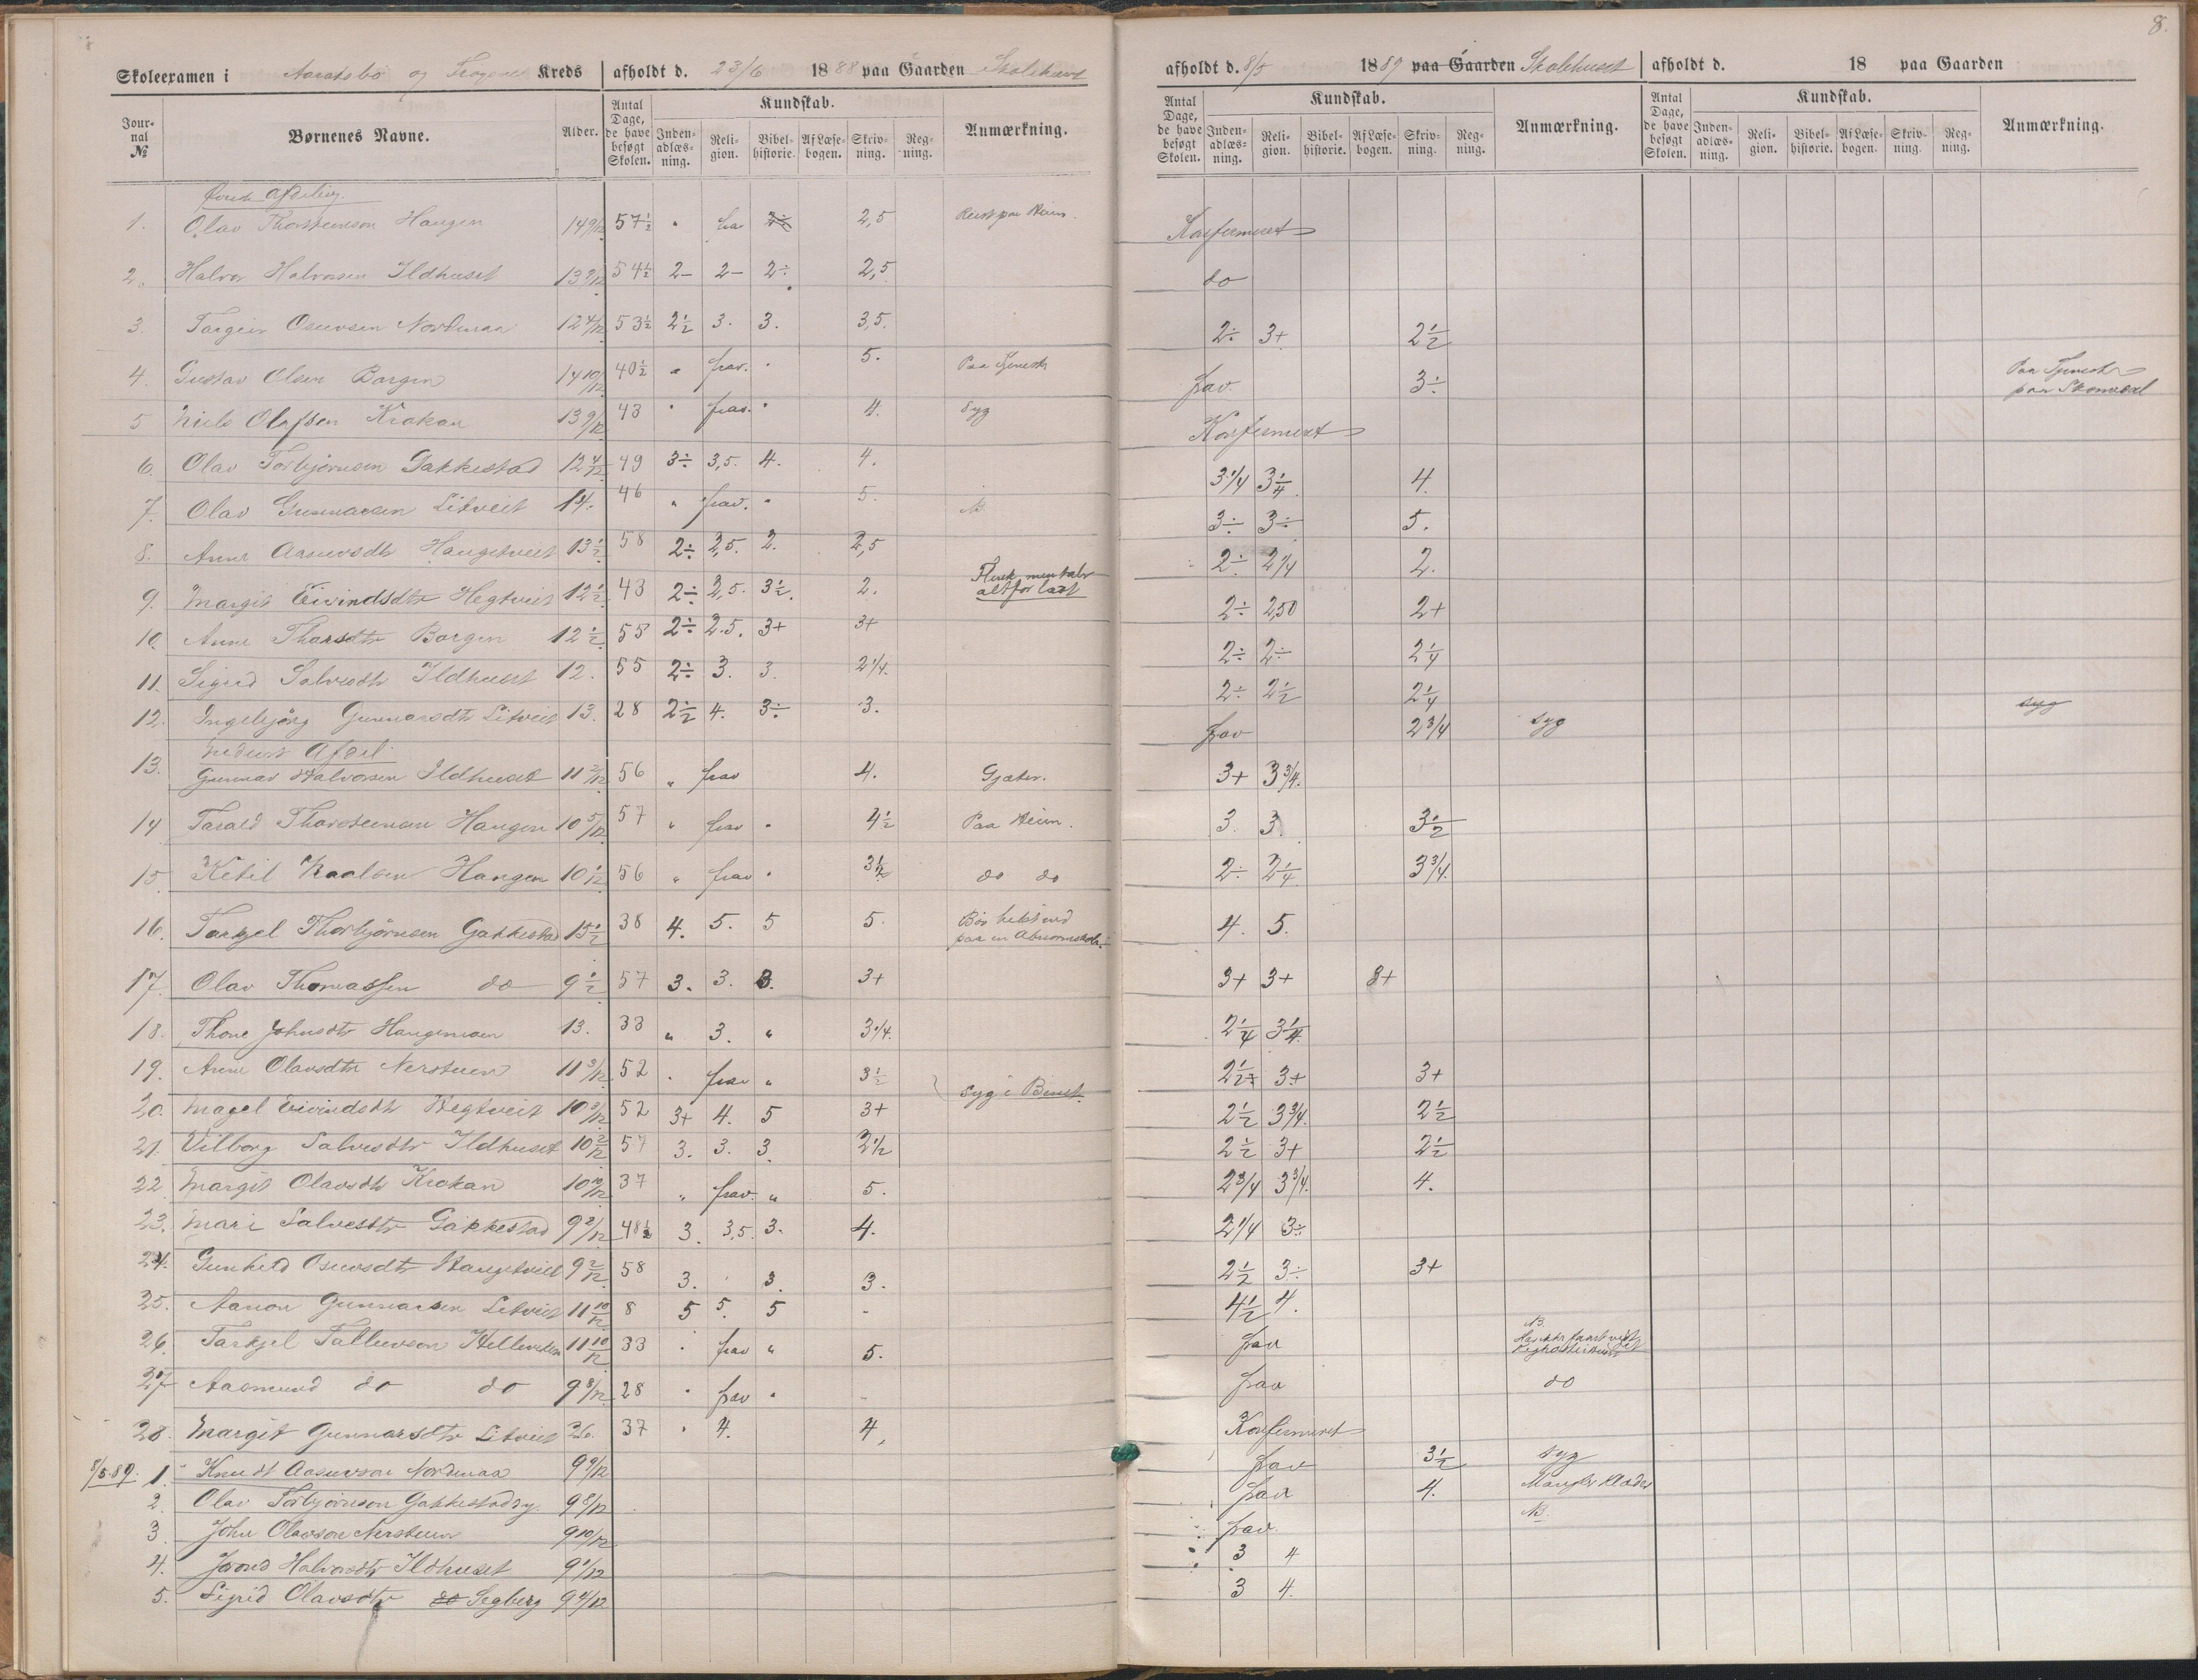 8.
Skoleexamen i Aaratsbø og Kreds afholdt d. 23/6 1888 paa Gaarden Skolehuset
afholdt d. 8/5 1889 paa Gaarden Skolehuset afholdt d. 18 paa Gaarden
Journal № Børnenes Navne. Alder. Antal Dage, de have besøgt Skolen. Kundskab. Indenadlæsning. Religion. Bibelhistorie. Af Læsebogen. Skrivning. Regning. Anmærkning.
Antal Dage, de have besøgt Skolen. Kundskab. Indenadlæsning. Religion. Bibelhistorie. Af Læsebogen. Skrivning. Regning. Anmærkning.
Antal Dage, de have besøgt Skolen. Kundskab. Indenadlæsning. Religion. Bibelhistorie. Af Læsebogen. Skrivning. Regning. Anmærkning.
Øverste Afdeling.
1. Olav Thorsteinson Haugen 14 9/12 57 1/2 " frav 2,5 Reist paa Heien. Konfirmeret
2. Halvor Halvorsen Ildhuset 13 9/12 54 1/2 2- 2- 2÷ 2,5 do
3. Targeir Osuvsen Nordmaa 12 4/12 53 1/2 2 1/2 3. 3. 3,5. 2÷ 3+ 2 1/2
4. Gustav Olsen Borgen 14 10/12 40 1/2 " frav. " 5. Paa Tjeneste frav. 3÷ Paa Tjeneste paa
5 Niels Olafsen Krokan 13 9/12 43 " frav. " 4. Syg Konfirmeret
6. Olav Torbjørnsen Gakkestad 12 4/12 49 3÷ 3,5. 4. 4. 3 1/4 3 1/4 4.
7. Olav Gunnarsen Litveit 14. 46 " frav. " 5. NB. 3÷ 3÷ 5.
8. Anne Aasuvsdtr Haugetveit 13 1/2 58 2÷ 2,5. 2. 2,5 2÷ 2 1/4 2.
9. Margit Eivindsdtr Hegtveit 12 1/2 43 2÷ 2,5. 3 1/2. 2. Flink, men taler altfor lavt 2÷ 2,50 2+
10. Anne Tharsdtr Borgen 12 1/2 55 2÷ 2.5. 3+ 3+ 2÷ 2÷ 2 1/4
11. Sigrid Salvesdtr Ildhuset 12. 55 2÷ 3. 3. 2 1/4. 2÷ 2 1/2 2 1/4
12. Ingebjørg Gunnarsdtr Litveit 13. 28 2 1/2 4. 3÷ 3. frav 2 3/4 syg syg
Nederste Afdel.
13. Gunnar Halvorsen Ildhuset 11 2/12 56 " frav 4. Gjæter. 3+ 3 3/4.
14 Tarald Thorsteinsen Haugen 10 5/12 57 " frav " 4 1/2 Paa Heien. 3. 3. 3 1/2
15. Ketil Haugen 10 1/12 56 " frav " 3 1/2 do do 2÷ 2 1/4 3 3/4.
16. Tarkjel Thorbjørnsen Gakkestad 15 1/2 38 4. 5. 5 5. Bør helst ind paa en Abnormskole. 4. 5.
17. Olav Thomassen do 9 1/2 57 3. 3. 3. 3+ 3+ 3+ 3+
18. Thone Johnsdtr Haugemoen 13. 33 " 3. " 3 1/4. 2 1/4 3 1/4
19. Anne Olavsdtr Nerstuen 11 3/12 52 " frav " 3 1/2 2 1/2+ 3+ 3+
20. Magel Eivindsdtr Hegtveit 10 3/12 52 3+ 4. 5 3+ Syg i Benet. 2 1/2 3 3/4. 2 1/2
21. Vilborg Salvesdtr Ildhuset 10 2/12 57 3. 3. 3. 2 1/2 2 1/2 3+ 2 1/2
22 Margit Olavsdtr Krokan 10 10/12 37 " frav. " 5. 2 3/4 3 3/4. 4.
23. Mari Salvesdtr Gakkestad 9 2/12 48 1/2 3. 3,5. 3. 4. 2 1/4 3÷
24. Gunhild Osuvsdtr Haugetveit 9 2/12 58 3. 3. 3. 2 1/2 3÷ 3+
25. Aanon Gunnarsen Litveit 11 10/12 8 5 5. 5 - 4 1/2 4.
26. Tarkjel Tallevson 11 10/12 33 " frav " 5. frav NB.
27 Aasmund do do 9 8/12 28 " frav " - frav do
28. Margit Gunnarsdtr Litveit 37 " 4. 4. Konfirmeret
8/5 89. 1. Knudt Aasuvson Nordmaa 9 9/12 frav 3 1/2 syg
2. Olav Torbjørnson Gakkestad 9 8/12 frav 4. Mangler Klæder
3. John Olavson Nerstuen 9 10/12 frav. NB
4. Halvorsdtr Ildhuset 9 1/12 3 4
5. Sigrid Olavsdtr do Segberg 9 4/12 3 4.